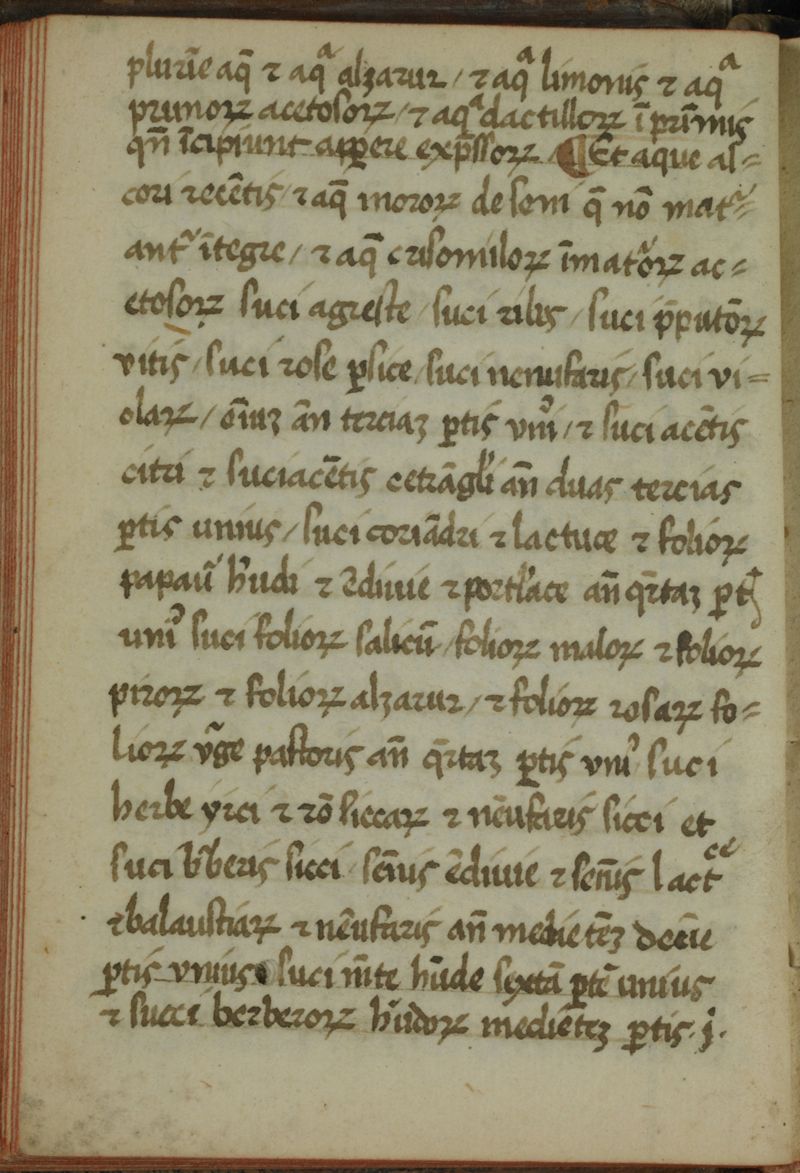 plurīe aq̄ ⁊ aqᵃ alzarur / ⁊ aqᵃ limonis ⁊ aqᵃ
prunoꝝ acetosoꝝ / ⁊ aqᵃ dactilloꝝ ī prīmis
qn̄ īcipiunt aꝑere exp̄ssoꝝ ¶ Et aque al=
cori recētis / ⁊ aq̄ moroꝝ de seni q̄ nō mat᷑=
ant᷑ ītegre / ⁊ aq̄ crisomiloꝝ īmat᷑oꝝ ac=
etosoꝝ suci agreste / suci ribes / suci p̄putōꝝ
vitis / suci rose ꝑsice / suci nenufaris / suci vi=
olaꝝ / oīuꝫ an̄ terciaꝫ ꝑtis vniꝰ / ⁊ suci acētis
citri ⁊ suci acētis cetrāgli an̄ duas tercias
ꝑtis unius / suci coriādri ⁊ lactuce ⁊ folioꝝ
papaū hu̓di ⁊ ēdiuie ⁊ portl̓ace an̄ qr̄taꝫ ꝑtꝭ
uniꝰ suci folioꝝ salicū / folioꝝ maloꝝ ⁊ folioꝝ
piroꝝ ⁊ folioꝝ alzarur / ⁊ folioꝝ rosaꝝ fo=
lioꝝ v̄ge pastoris an̄ qr̄taꝫ ꝑtis vniꝰ suci
herbe yrci ⁊ rō siccaꝝ ⁊ nēufaris sicci et
suci b̓beris sicci / sēnis ēdiuie ⁊ sēnis lactᶜᵉ
⁊ balaustiaꝝ ⁊ nēufaris an̄ medietēꝫ decīe
ꝑtis vnius suci mēte hūde sextā ꝑtē unius
⁊ succi berberoꝝ hu̓idoꝝ mediētēꝫ ꝑtis .j.